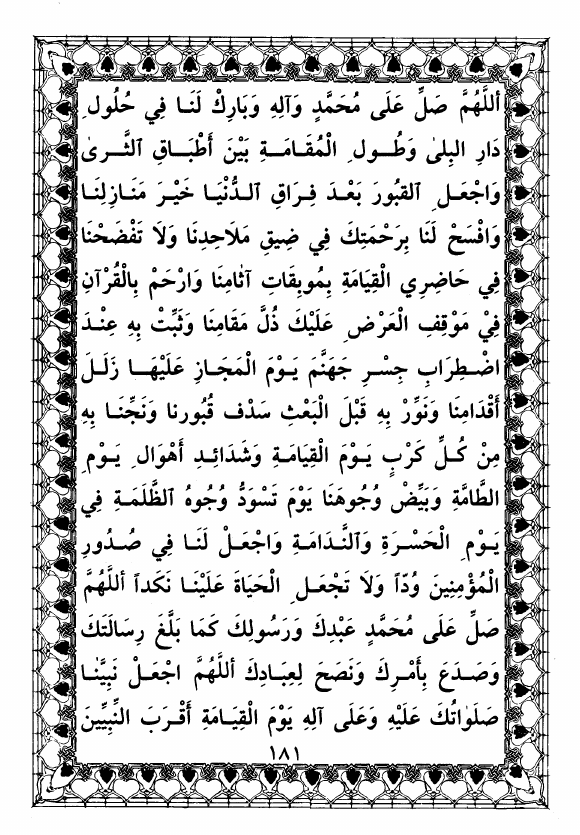 أَللَّهُمَّ صَلِّ عَلَى مُحَمَّدٍ وَآلِهِ وَبَارِكْ لَنَا فِي حُلُولِ
دَارِ البِلىٰ وَطُولِ الْمُقَامَةِ بَيْنَ أَطْبَاقِ الثَّرىٰ
وَاجْعَلِ القبُورَ بَعْدَ فِرَاقِ الدُّنْيَا خَيْرَ مَنَازِلِنَا
وَافْسَحْ لَنَا بِرَحْمَتِكَ فِي ضِيقِ مَلَاحِدِنَا وَلَا تَفْضَحْنَا
فِي حَاضِرِي الْقِيَامَةِ بِمُوبِقَاتِ آثَامِنَا وَارْحَمْ بِالْقُرْآنِ
فِيْ مَوْقِفِ الْعَرْضِ عَلَيْكَ ذُلَّ مَقَامِنَا وَثَبِّتْ بِهِ عِنْدَ
اضْطِرَابِ جِسْرِ جَهَنَّمَ يَوْمَ الْمَجَازِ عَلَيْهَا زَلَلَ
أَقْدَامِنَا وَنَوِّرْ بِهِ قَبْلَ الْبَعْثِ سَدْفَ قُبُورِنا وَنَجِّنَا بِهِ
مِنْ كُلِّ كَرْبٍ يَوْمَ الْقِيَامَةِ وَشَدَائِدِ أَهْوَالِ يَوْمِ
الطَّامَّةِ وَبَيِّضْ وُجُوهَنَا يَوْمَ تَسْوَدُّ وُجُوهُ الظَّلَمَةِ فِي
يَوْمِ الْحَسْرَةِ وَالنَّدَامَةِ وَاجْعَلْ لَنَا فِي صُدُورِ
الْمُؤْمِنِينَ وُدّاً وَلَا تَجْعَلِ الْحَيَاةَ عَلَيْنَا نَكَداً أَللَّهُمَّ
صَلِّ عَلَى مُحَمَّدٍ عَبْدِكَ وَرَسُولِكَ كَمَا بَلَّغَ رِسَالَتَكَ
وَصَدَعَ بِأَمْرِكَ وَنَصَحَ لِعِبَادِكَ أَللَّهُمَّ اجْعَلْ نَبِيَّنَا
صَلَوٰاتُكَ عَلَيْهِ وَعَلَى آلِهِ يَوْمَ الْقِيَامَةِ أَقْرَبَ النَّبِيِّينَ
١٨١